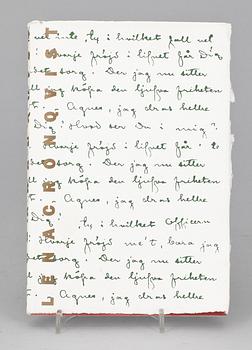 LENA CRONQVIST
vet inte, ty i hvilket fall vet
varje fröjd i lifvet får Dig
sorg. Der jag nu sitter
jag köpa den ljufva friheten
. Agnes, jag dras hellre
Dig! Hvad ser Du i mig?
varje fröjd i lifvet får
sorg. Der jag nu sitter
jag köpa den ljufva friheten
. Agnes, jag dras hellre
Dig! ty i hvilket Officern
varje fröjd me't, bara jag
sorg. Der jag nu sitter
jag köpa den ljufva friheten
. Agnes, jag dras hellre